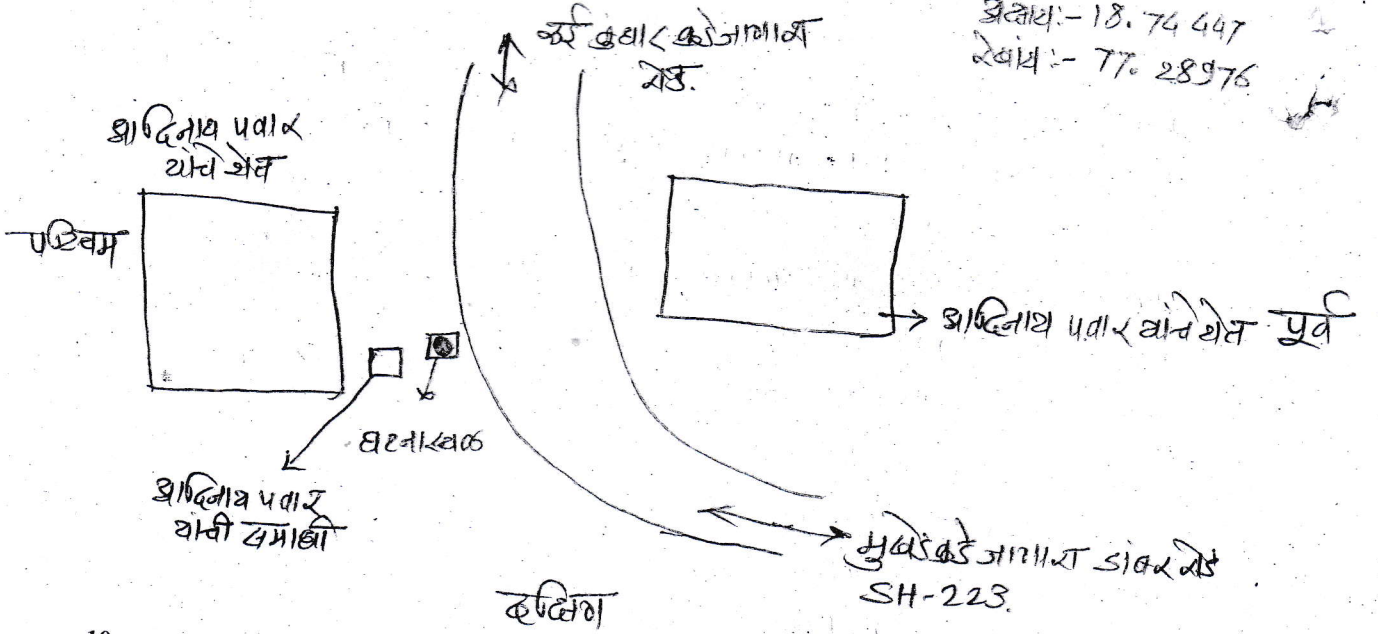 अक्षांश:- 18.74447
रेखांश:- 77.28976
कडे जाणारा
रोड.
आदिनाथ पवार
यांचे शेत
पश्चिम
आदिनाथ पवार यांचे शेत पूर्व
घटनास्थळ
आदिनाथ पवार
यांची समाधी
मुखेडकडे जाणारा डांबर रोड
SH-223.
दक्षिण